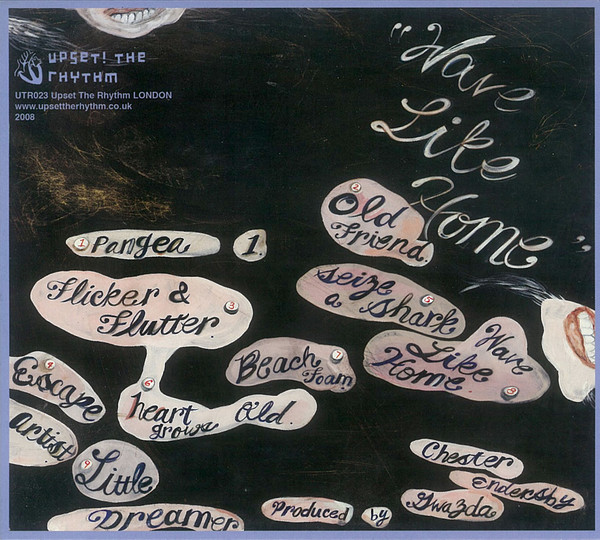 UPSET! THE
RHYTHM
UTR023 Upset The Rhythm LONDON
www.upsettherhythm.co.uk
2008
"Wave
Like
Home"
1 Pangea 1.
2 Old
Friend.
Flicker & 3
Flutter.
4 Escape
Artist
seize 5
a shark
6 heart Old.
grows
Beach 7
Foam
Wave
Like
Home 9
9 Little
Dreamer
Produced by
Chester
Endersby
Gwazda